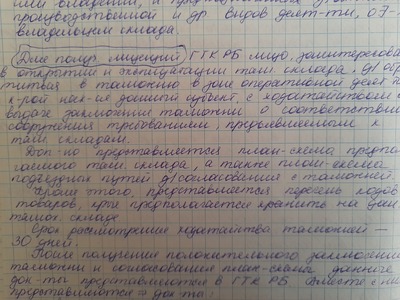 производственной и др видов деят-ти, от
владельцем склада.
Для получ. лицензий ГТК РБ лицо, заинтересова
в открытии и эксплуатации там. склада, д/ обр
в таможню в зоне оперативной деят
к-рой нах-ся данный субъект, с ходатайством о
выдаче заключения таможни о соответствии
сооружения требованиям, предъявляемым к
там. складам.
Доп-но представляется план-схема предпо
гаемого там. склада, а также план-схема
подъездных путей д/согласования с таможней.
Кроме этого, представляется перечень кодов
товаров, кот предполагается хранить на дан
тамож. складе
Срок рассмотрения ходатайства таможней —
30 дней.
После получения положительного заключения
таможни и согласования план-схемы данные
док-ты представляются в ГТК РБ. Вместе с ни
представляются док-ты: